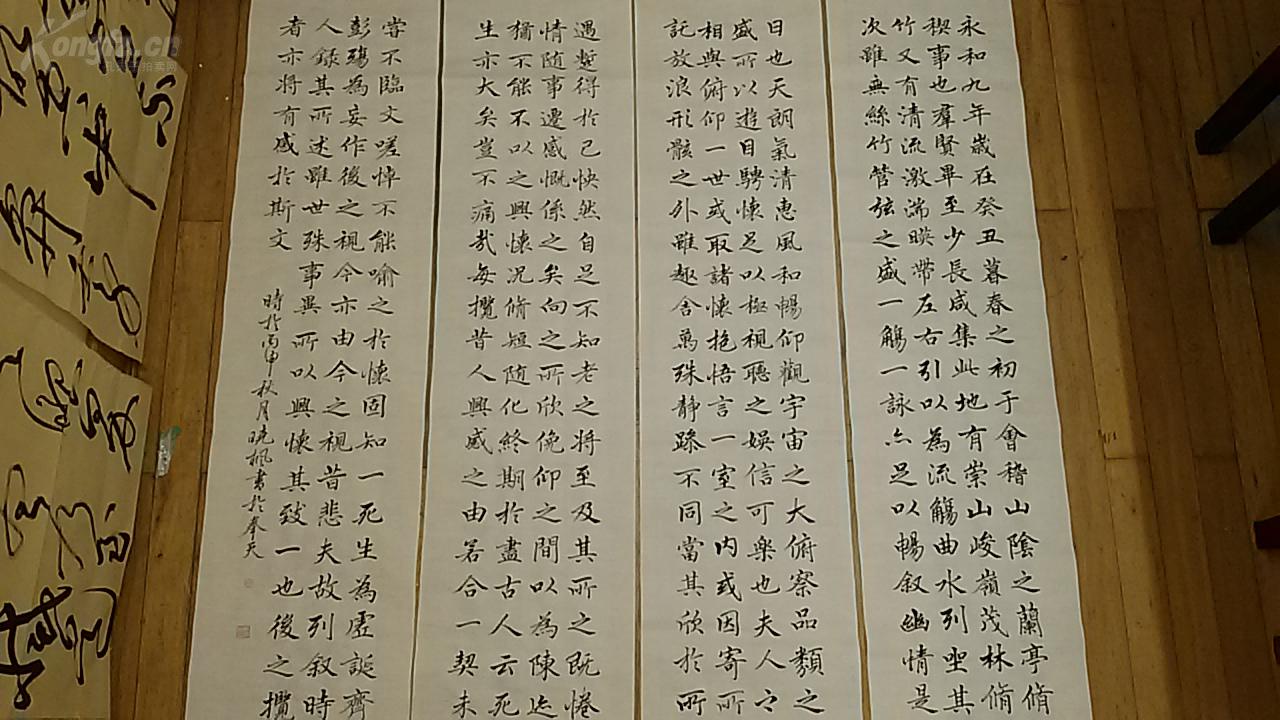 永和九年歲在癸丑暮春之初于會稽山陰之蘭亭脩
禊事也羣賢畢至少長咸集此地有崇山峻嶺茂林脩
竹又有清流激湍暎帶左右引以為流觴曲水列坐其
次雖無絲竹管弦之盛一觴一詠亦足以暢叙幽情是
日也天朗氣清惠風和暢仰觀宇宙之大俯察品類之
盛所以遊目騁懷足以極視聽之娛信可樂也夫人之
相與俯仰一世或取諸懷抱悟言一室之內或因寄所
託放浪形骸之外雖趣舍萬殊靜躁不同當其欣於所
遇蹔得於己快然自足不知老之將至及其所之既惓
情随事遷感慨係之矣向之所欣俛仰之間以為陳迹
猶不能不以之興懷況脩短随化終期於盡古人云死
生亦大矣豈不痛哉每攬昔人興感之由若合一契未
嘗不臨文嗟悼不能喻之於懷固知一死生為虛誕齊
彭殤為妄作後之視今亦由今之視昔悲夫故列叙時
人錄其所述雖世殊事異所以興懷其致一也後之攬
者亦將有感於斯文
時於丙申秋月曉楓書於奉天
Kongfz.cn
孔夫子拍卖网